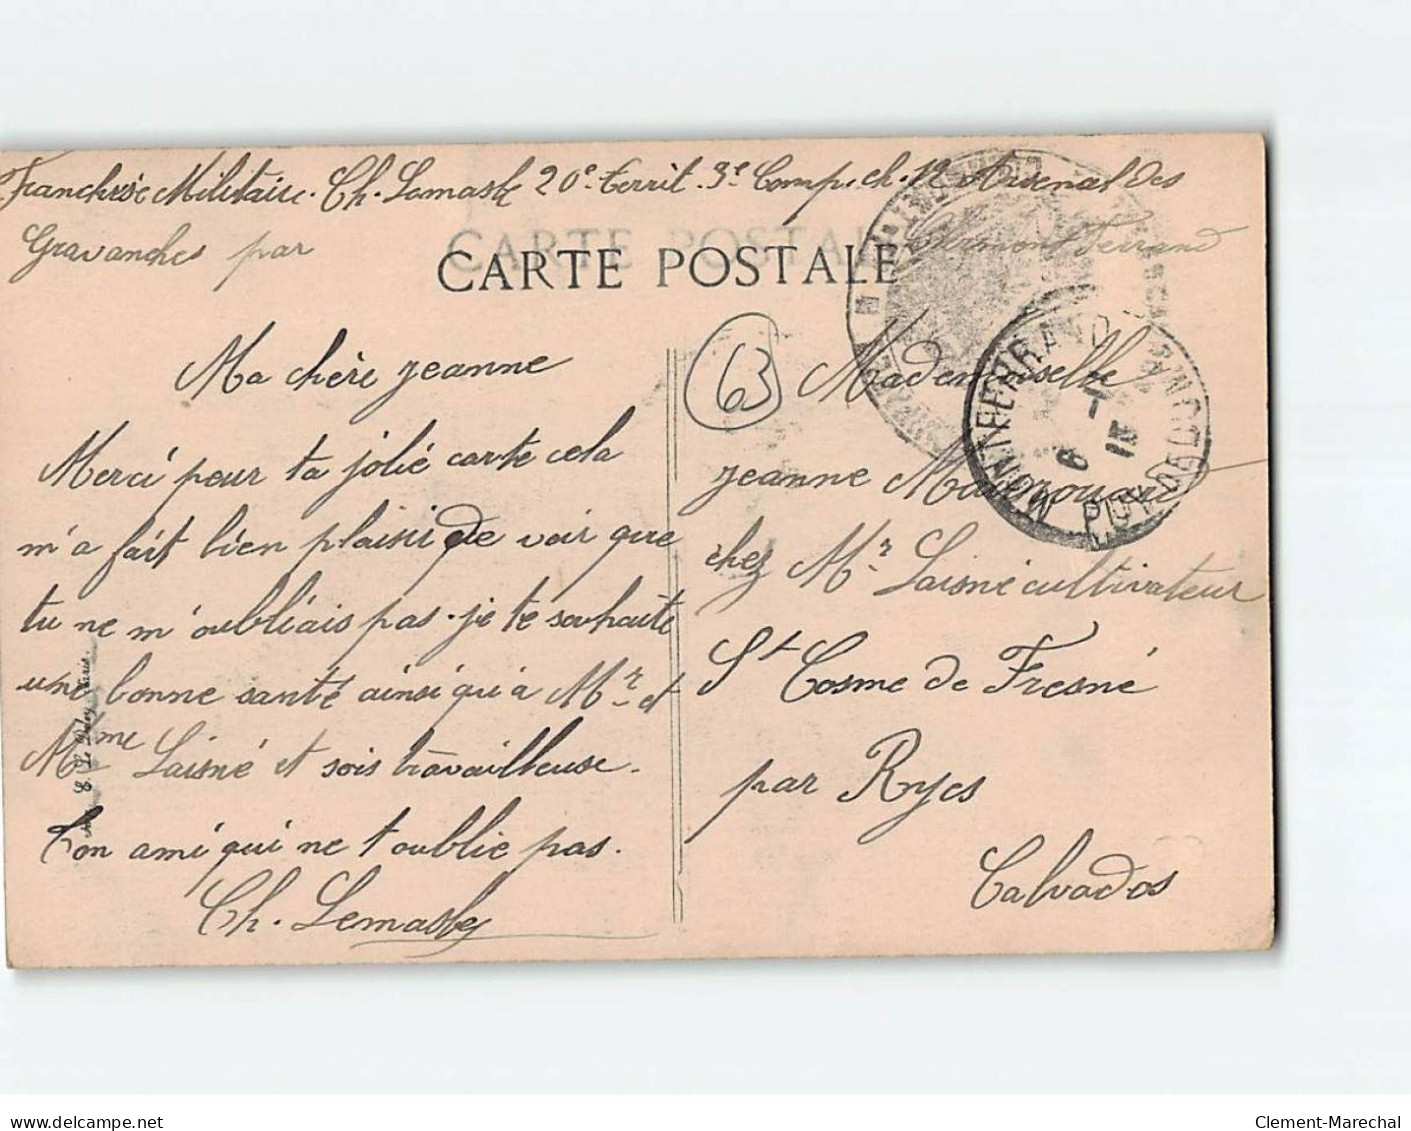 Franchise Militaire. Ch. Lemasle 20e territ. 3e Comp. ch. 12 Arsenal des
Gravanches par Clermont Ferrand
CARTE POSTALE
63
Ma chère jeanne
Merci pour ta jolie carte cela
m'a fait bien plaisir de voir que
tu ne m'oubliais pas. je te souhaite
une bonne santé ainsi qu'à Mr et
Mme Laisné et sois travailleuse.
Ton ami qui ne t'oublie pas.
Ch. Lemasle
Mademoiselle
jeanne
chez Mr Laisné cultivateur
St Cosme de Fresné
par Ryes
Calvados
MONTFERRAND
PUY DE DOME
delcampe.net
Clement-Marechal